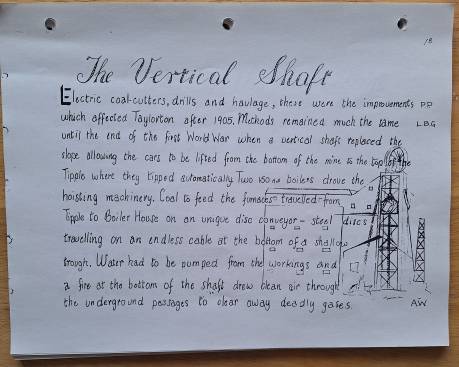 18
The Vertical Shaft
Electric coal-cutters, drills and haulage, these were the improvements P.P.
which affected Taylorton after 1905. Methods remained much the same L.B.G
until the end of the first World War when a vertical shaft replaced the
slope allowing the cars to be lifted from the bottom of the mine to the top of the
Tipple where they tipped automatically. Two 150 H.P. boilers drove the
hoisting machinery. Coal to feed the furnaces travelled from
Tipple to Boiler House on an unique disc conveyor - steel discs
travelling on an endless cable at the bottom of a shallow
trough. Water had to be pumped from the workings and
a fire at the bottom of the shaft drew clean air through
the underground passages to clear away deadly gases.
AW